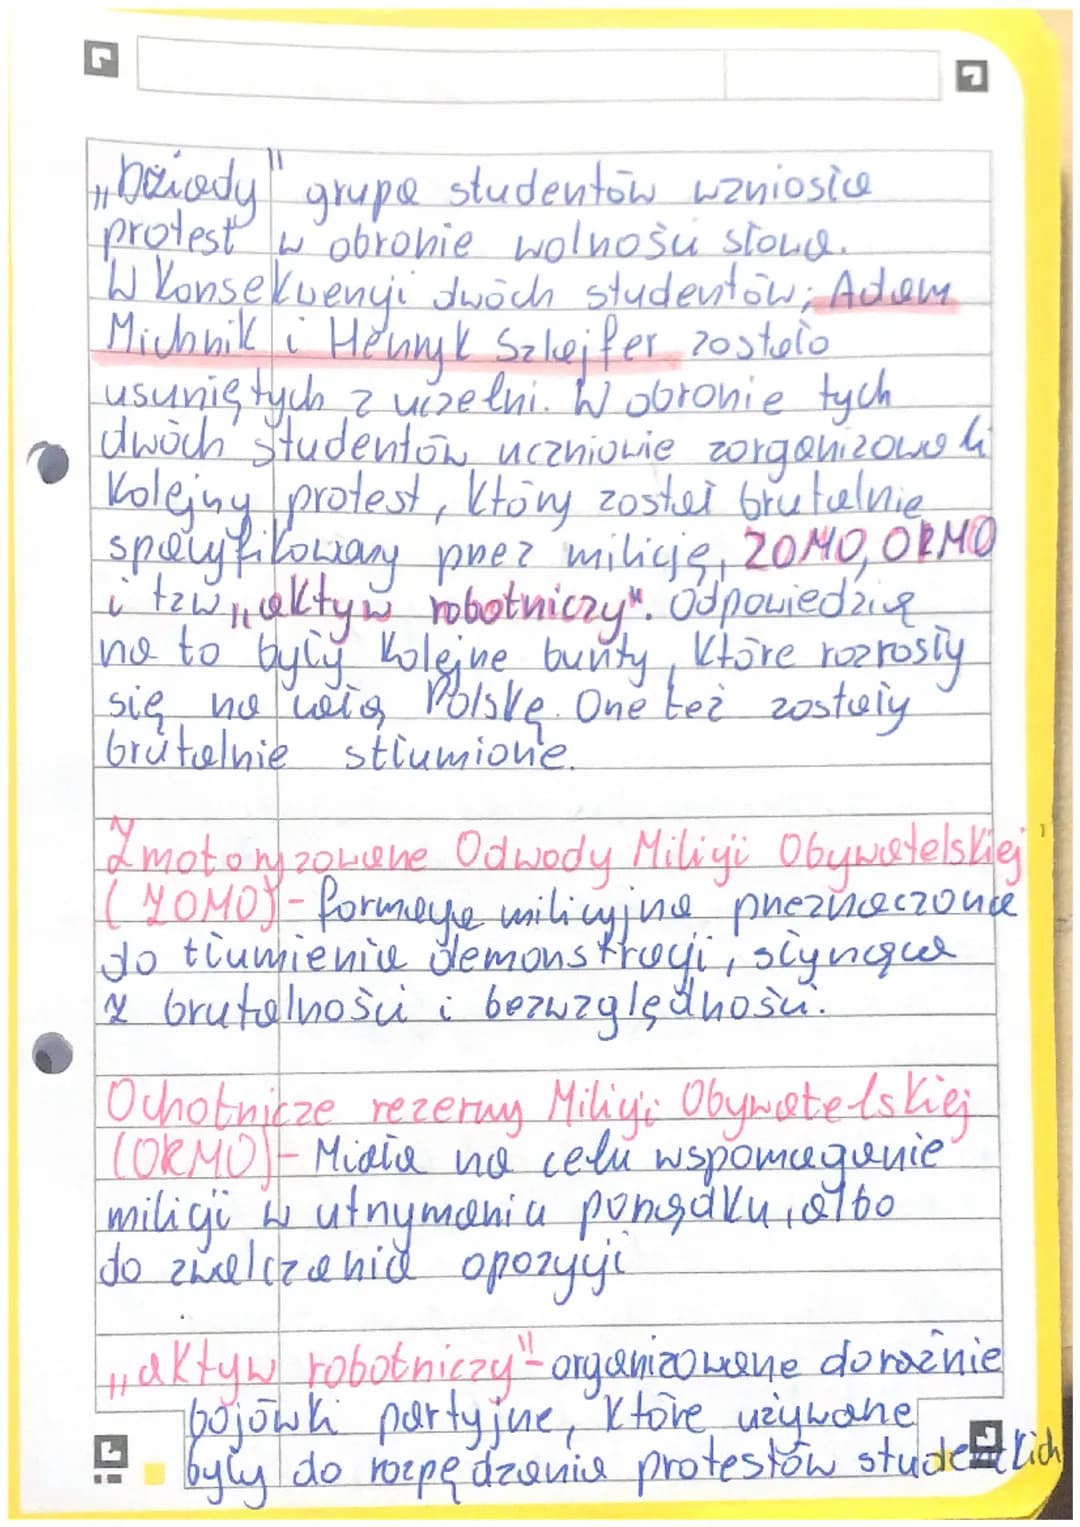 „Dziady" grupa studentów wzniosła
protest w obronie wolności słowa.
W Konsekwencji dwóch studentów; Adam
Michnik i Henryk Szlajfer zostało
usuniętych z uczelni. W obronie tych
dwóch studentów uczniowie zorganizowali
kolejny protest, który został brutalnie
spacyfikowany przez milicję, ZOMO, ORMO
i tzw „aktyw robotniczy". Odpowiedzią
na to były kolejne bunty, które rozrosły
się na całą Polskę. One też zostały
brutalnie stłumione.
Zmotoryzowane Odwody Milicji Obywatelskiej
(ZOMO) - formacja milicyjna przeznaczona
do tłumienia demonstracji, słynąca
z brutalności i bezwzględności.
Ochotnicze rezerwy Milicji Obywatelskiej
(ORMO) - Miała na celu wspomaganie
milicji w utrzymaniu porządku, albo
do zwalczania opozycji
„aktyw robotniczy" - organizowane doraźnie
bojówki partyjne, które używane
były do rozpędzania protestów studenckich